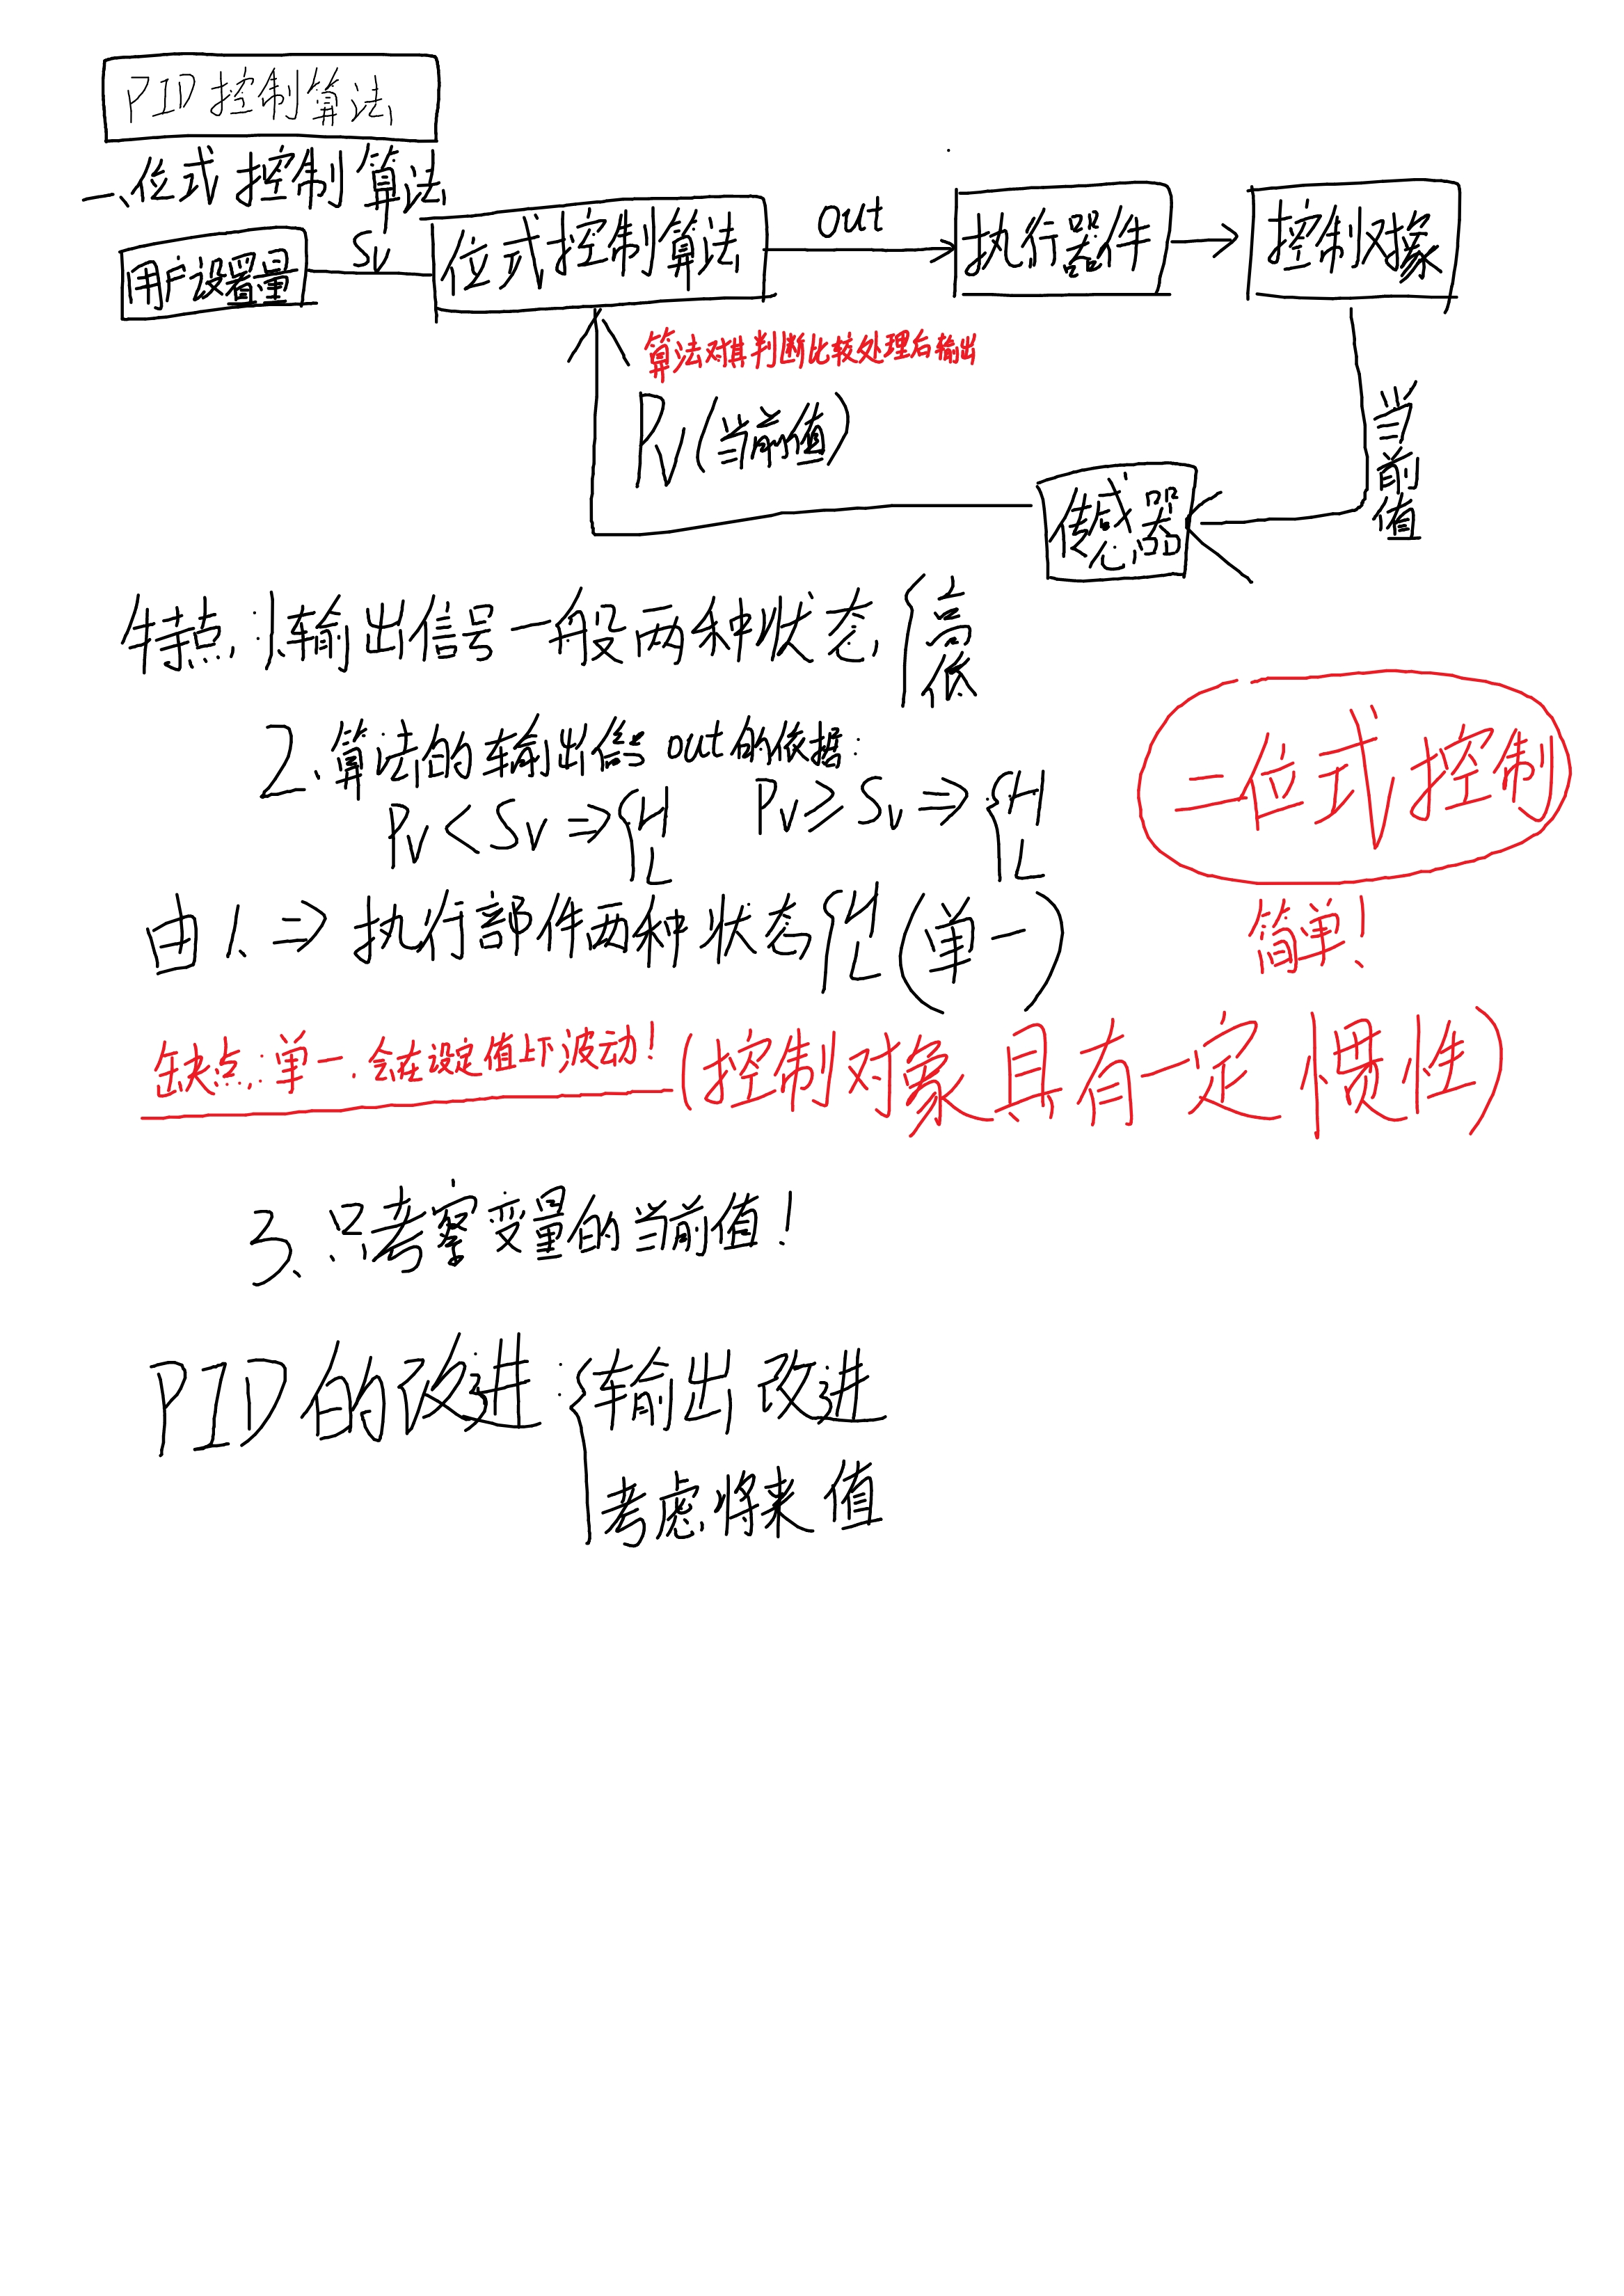 PID控制算法
一、位式控制算法
用户设置量
Sv
位式控制算法
out
执行器件
控制对象
算法对其判断比较处理后输出
Pv(当前值)
当前值
传感器
特点：1.输出信号一般两种状态{高
低
2.算法的输出信号out的依据：
Pv<Sv⇒{H
L
Pv≥Sv⇒{H
L
二位式控制
简单！
由1.⇒执行部件两种状态{H
L(单一)
缺点：单一.会在设定值上下波动！(控制对象具有一定惯性)
3、只考察变量的当前值！
PID的改进：{输出改进
考虑将来值